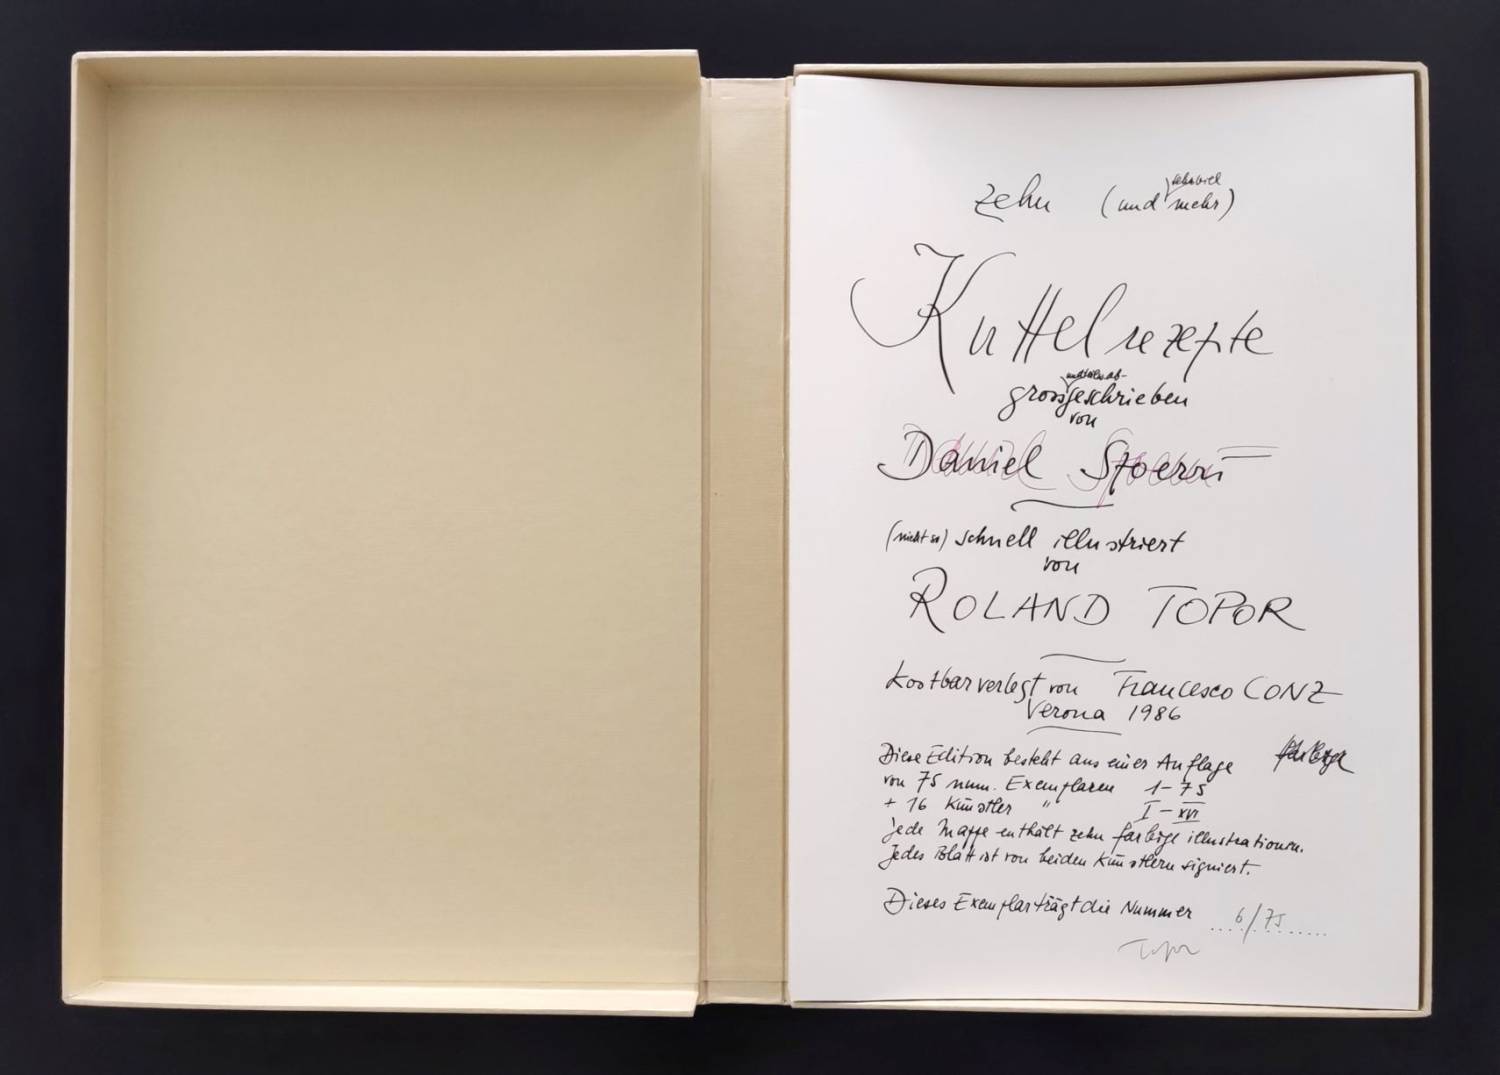 zehn (und sehr viel mehr)
Kuttelrezepte
grossgeschrieben
von
Daniel Spoerri
(nicht so) schnell illustriert
von
ROLAND TOPOR
kostbar verlegt von Francesco CONZ
Verona 1986
Diese Edition besteht aus einer Auflage
von 75 num. Exemplaren 1-75
+ 16 Künstler " I - XVI
jede Mappe enthält zehn farbige illustrationen.
Jedes Blatt ist von beiden Künstlern signiert.
Dieses Exemplar trägt die Nummer ....6/75......
Topor